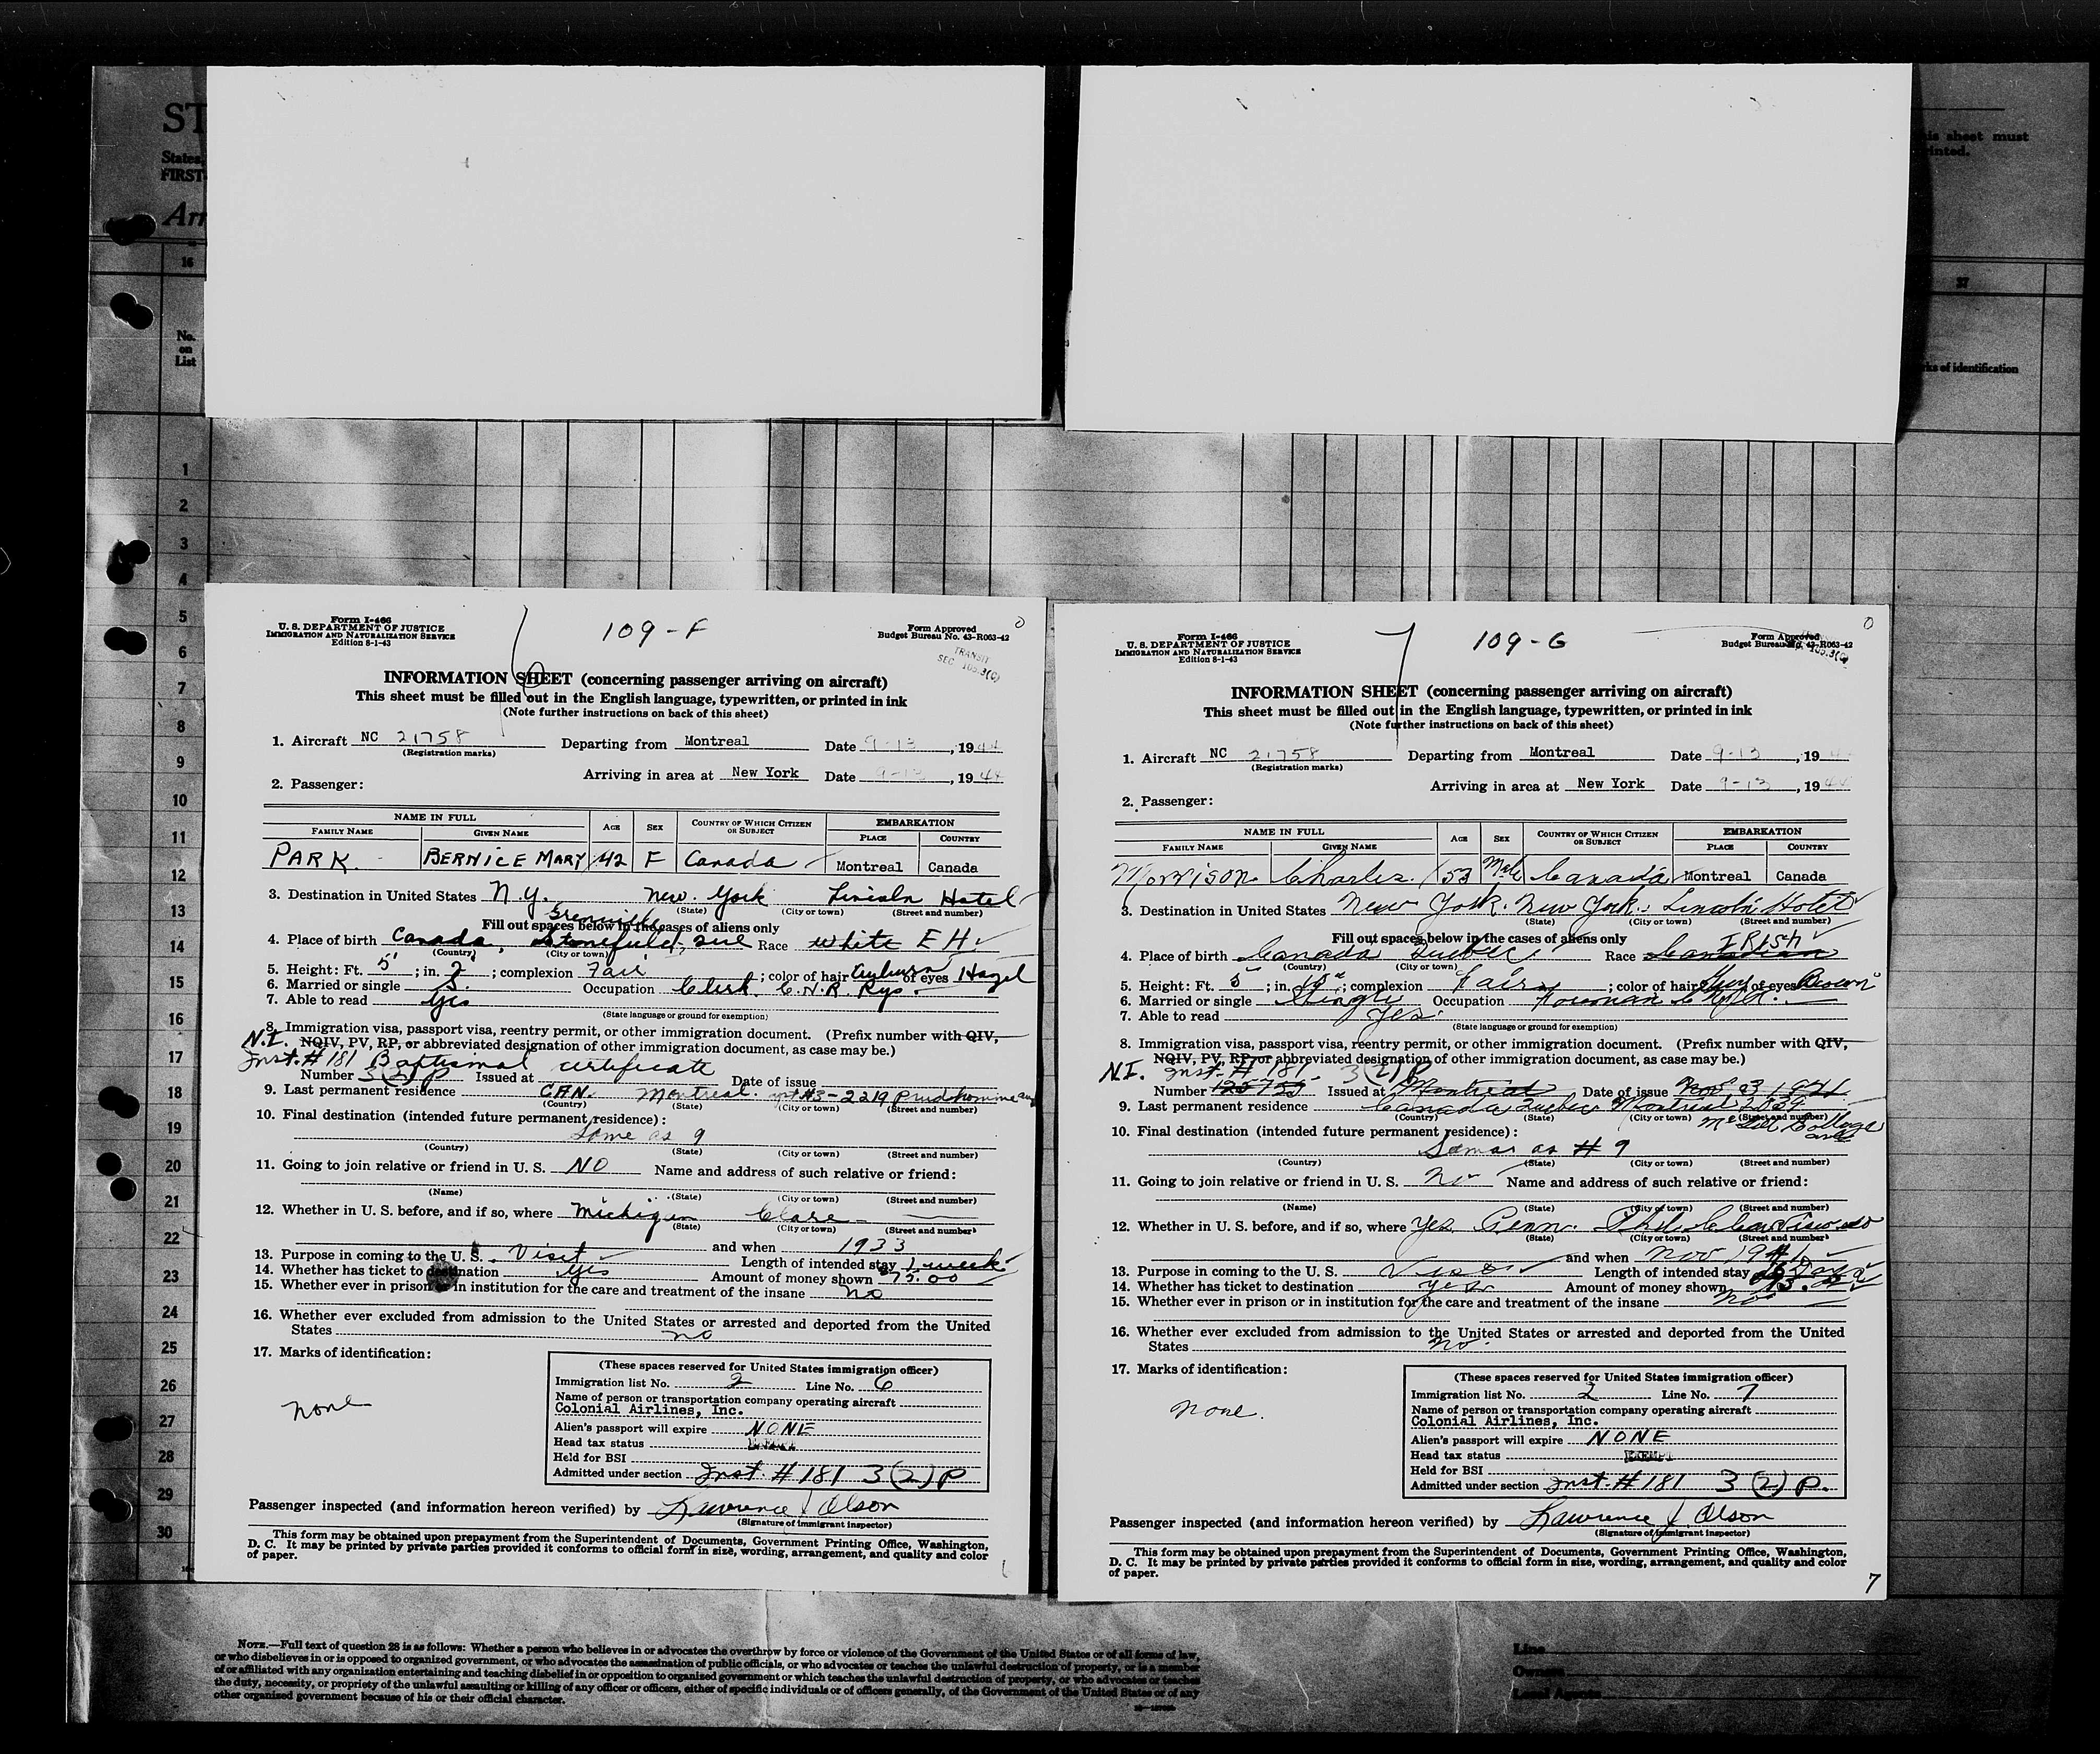 ST
States,
FIRST
Arr
is sheet must
rinted.
16
37
No.
on
List
rks of identification
1
2
3
4
5
6
7
8
9
10
11
12
13
14
15
16
17
18
19
20
21
22
23
24
25
26
27
28
29
30
Form I-466
U. S. DEPARTMENT OF JUSTICE
IMMIGRATION AND NATURALIZATION SERVICE
Edition 8-1-43
109-F
0
Form Approved
Budget Bureau No. 43-R063-42
TRANSIT
SEC 105.3(C)
6
INFORMATION SHEET (concerning passenger arriving on aircraft)
This sheet must be filled out in the English language, typewritten, or printed in ink
(Note further instructions on back of this sheet)
1. Aircraft NC 21758 Departing from Montreal Date 9-13, 1944
(Registration marks)
Arriving in area at New York Date 9-13, 1944
2. Passenger:
NAME IN FULL AGE SEX COUNTRY OF WHICH CITIZEN OR SUBJECT EMBARKATION
FAMILY NAME GIVEN NAME PLACE COUNTRY
PARK BERNICE MARY 42 F Canada Montreal Canada
3. Destination in United States N.Y. New York Lincoln Hotel
(State) (City or town) (Street and number)
Grenville
Fill out spaces below in the cases of aliens only
4. Place of birth Canada, Stonefield, Que Race White EH
(Country) (City or town)
5. Height: Ft. 5 ; in. 2 ; complexion Fair ; color of hair Auburn of eyes Hazel
6. Married or single S. Occupation Clerk C.N.R. Rys.
7. Able to read yes
(State language or ground for exemption)
8. Immigration visa, passport visa, reentry permit, or other immigration document. (Prefix number with QIV,
N.I. NQIV, PV, RP, or abbreviated designation of other immigration document, as case may be.)
Inst. # 181 Baptismal certificate
Number 3(2)P Issued at Date of issue
9. Last permanent residence CAN. Montreal apt #3-2219 Prudhomme ave
(Country) (State) (City or town) (Street and number)
10. Final destination (intended future permanent residence):
Same as 9
(Country) (State) (City or town) (Street and number)
11. Going to join relative or friend in U. S. NO Name and address of such relative or friend:
(Name) (State) (City or town) (Street and number)
12. Whether in U. S. before, and if so, where Michigan Clare
(State) (City or town) (Street and number)
and when 1933
13. Purpose in coming to the U. S. Visit Length of intended stay 1 week
14. Whether has ticket to destination yes Amount of money shown 75.00
15. Whether ever in prison or in institution for the care and treatment of the insane no
16. Whether ever excluded from admission to the United States or arrested and deported from the United
States no
17. Marks of identification:
none
(These spaces reserved for United States immigration officer)
Immigration list No. 2 Line No. 6
Name of person or transportation company operating aircraft
Colonial Airlines, Inc.
Alien's passport will expire NONE
Head tax status EXEMPT
Held for BSI
Admitted under section Inst. # 181 3(2)P
Passenger inspected (and information hereon verified) by Lawrence J Olson
(Signature of immigrant inspector)
This form may be obtained upon prepayment from the Superintendent of Documents, Government Printing Office, Washington,
D. C. It may be printed by private parties provided it conforms to official form in size, wording, arrangement, and quality and color
of paper.
Form I-466
U. S. DEPARTMENT OF JUSTICE
IMMIGRATION AND NATURALIZATION SERVICE
Edition 8-1-43
7
109-G
0
Form Approved
Budget Bureau No. 43-R063-42
105.3(C)
INFORMATION SHEET (concerning passenger arriving on aircraft)
This sheet must be filled out in the English language, typewritten, or printed in ink
(Note further instructions on back of this sheet)
1. Aircraft NC 21758 Departing from Montreal Date 9-13, 1944
(Registration marks)
Arriving in area at New York Date 9-13, 1944
2. Passenger:
NAME IN FULL AGE SEX COUNTRY OF WHICH CITIZEN OR SUBJECT EMBARKATION
FAMILY NAME GIVEN NAME PLACE COUNTRY
Morrison Charles 53 Male Canada Montreal Canada
3. Destination in United States New York. New York. Lincoln Hotel
(State) (City or town) (Street and number)
Fill out spaces below in the cases of aliens only
IRISH
4. Place of birth Canada Quebec Race Canadian
(Country) (City or town)
5. Height: Ft. 5 ; in. 10 ; complexion Fair ; color of hair Grey of eyes Brown
6. Married or single Single Occupation Foreman
7. Able to read Yes
(State language or ground for exemption)
8. Immigration visa, passport visa, reentry permit, or other immigration document. (Prefix number with QIV,
NQIV, PV, RP, or abbreviated designation of other immigration document, as case may be.)
N.I. Inst. # 181 3(2)P
Number 125755 Issued at Montreal Date of issue Nov 23 1941
9. Last permanent residence Canada Quebec Montreal 2039
(Country) (State) (City or town) (Street and number)
McGill College ave
10. Final destination (intended future permanent residence):
Same as # 9
(Country) (State) (City or town) (Street and number)
11. Going to join relative or friend in U. S. No Name and address of such relative or friend:
(Name) (State) (City or town) (Street and number)
12. Whether in U. S. before, and if so, where Yes Penn.
(State) (City or town) (Street and number)
and when Nov 1941
13. Purpose in coming to the U. S. Visit Length of intended stay Days
14. Whether has ticket to destination yes Amount of money shown
15. Whether ever in prison or in institution for the care and treatment of the insane no
16. Whether ever excluded from admission to the United States or arrested and deported from the United
States no
17. Marks of identification:
none.
(These spaces reserved for United States immigration officer)
Immigration list No. 2 Line No. 7
Name of person or transportation company operating aircraft
Colonial Airlines, Inc.
Alien's passport will expire NONE
Head tax status EXEMPT
Held for BSI
Admitted under section Inst. # 181 3(2)P.
Passenger inspected (and information hereon verified) by Lawrence J. Olson
(Signature of immigrant inspector)
This form may be obtained upon prepayment from the Superintendent of Documents, Government Printing Office, Washington,
D. C. It may be printed by private parties provided it conforms to official form in size, wording, arrangement, and quality and color
of paper.
7
NOTE.—Full text of question 28 is as follows: Whether a person who believes in or advocates the overthrow by force or violence of the Government of the United States or of all forms of law,
or who disbelieves in or is opposed to organized government, or who advocates the assassination of public officials, or who advocates or teaches the unlawful destruction of property, or is a member
of or affiliated with any organization entertaining and teaching disbelief in or opposition to organized government or which teaches the unlawful destruction of property, or who advocates or teaches
the duty, necessity, or propriety of the unlawful assaulting or killing of any officer or officers, either of specific individuals or of officers generally, of the Government of the United States or of any
other organized government because of his or their official character.
Line
Owners
Local Agents